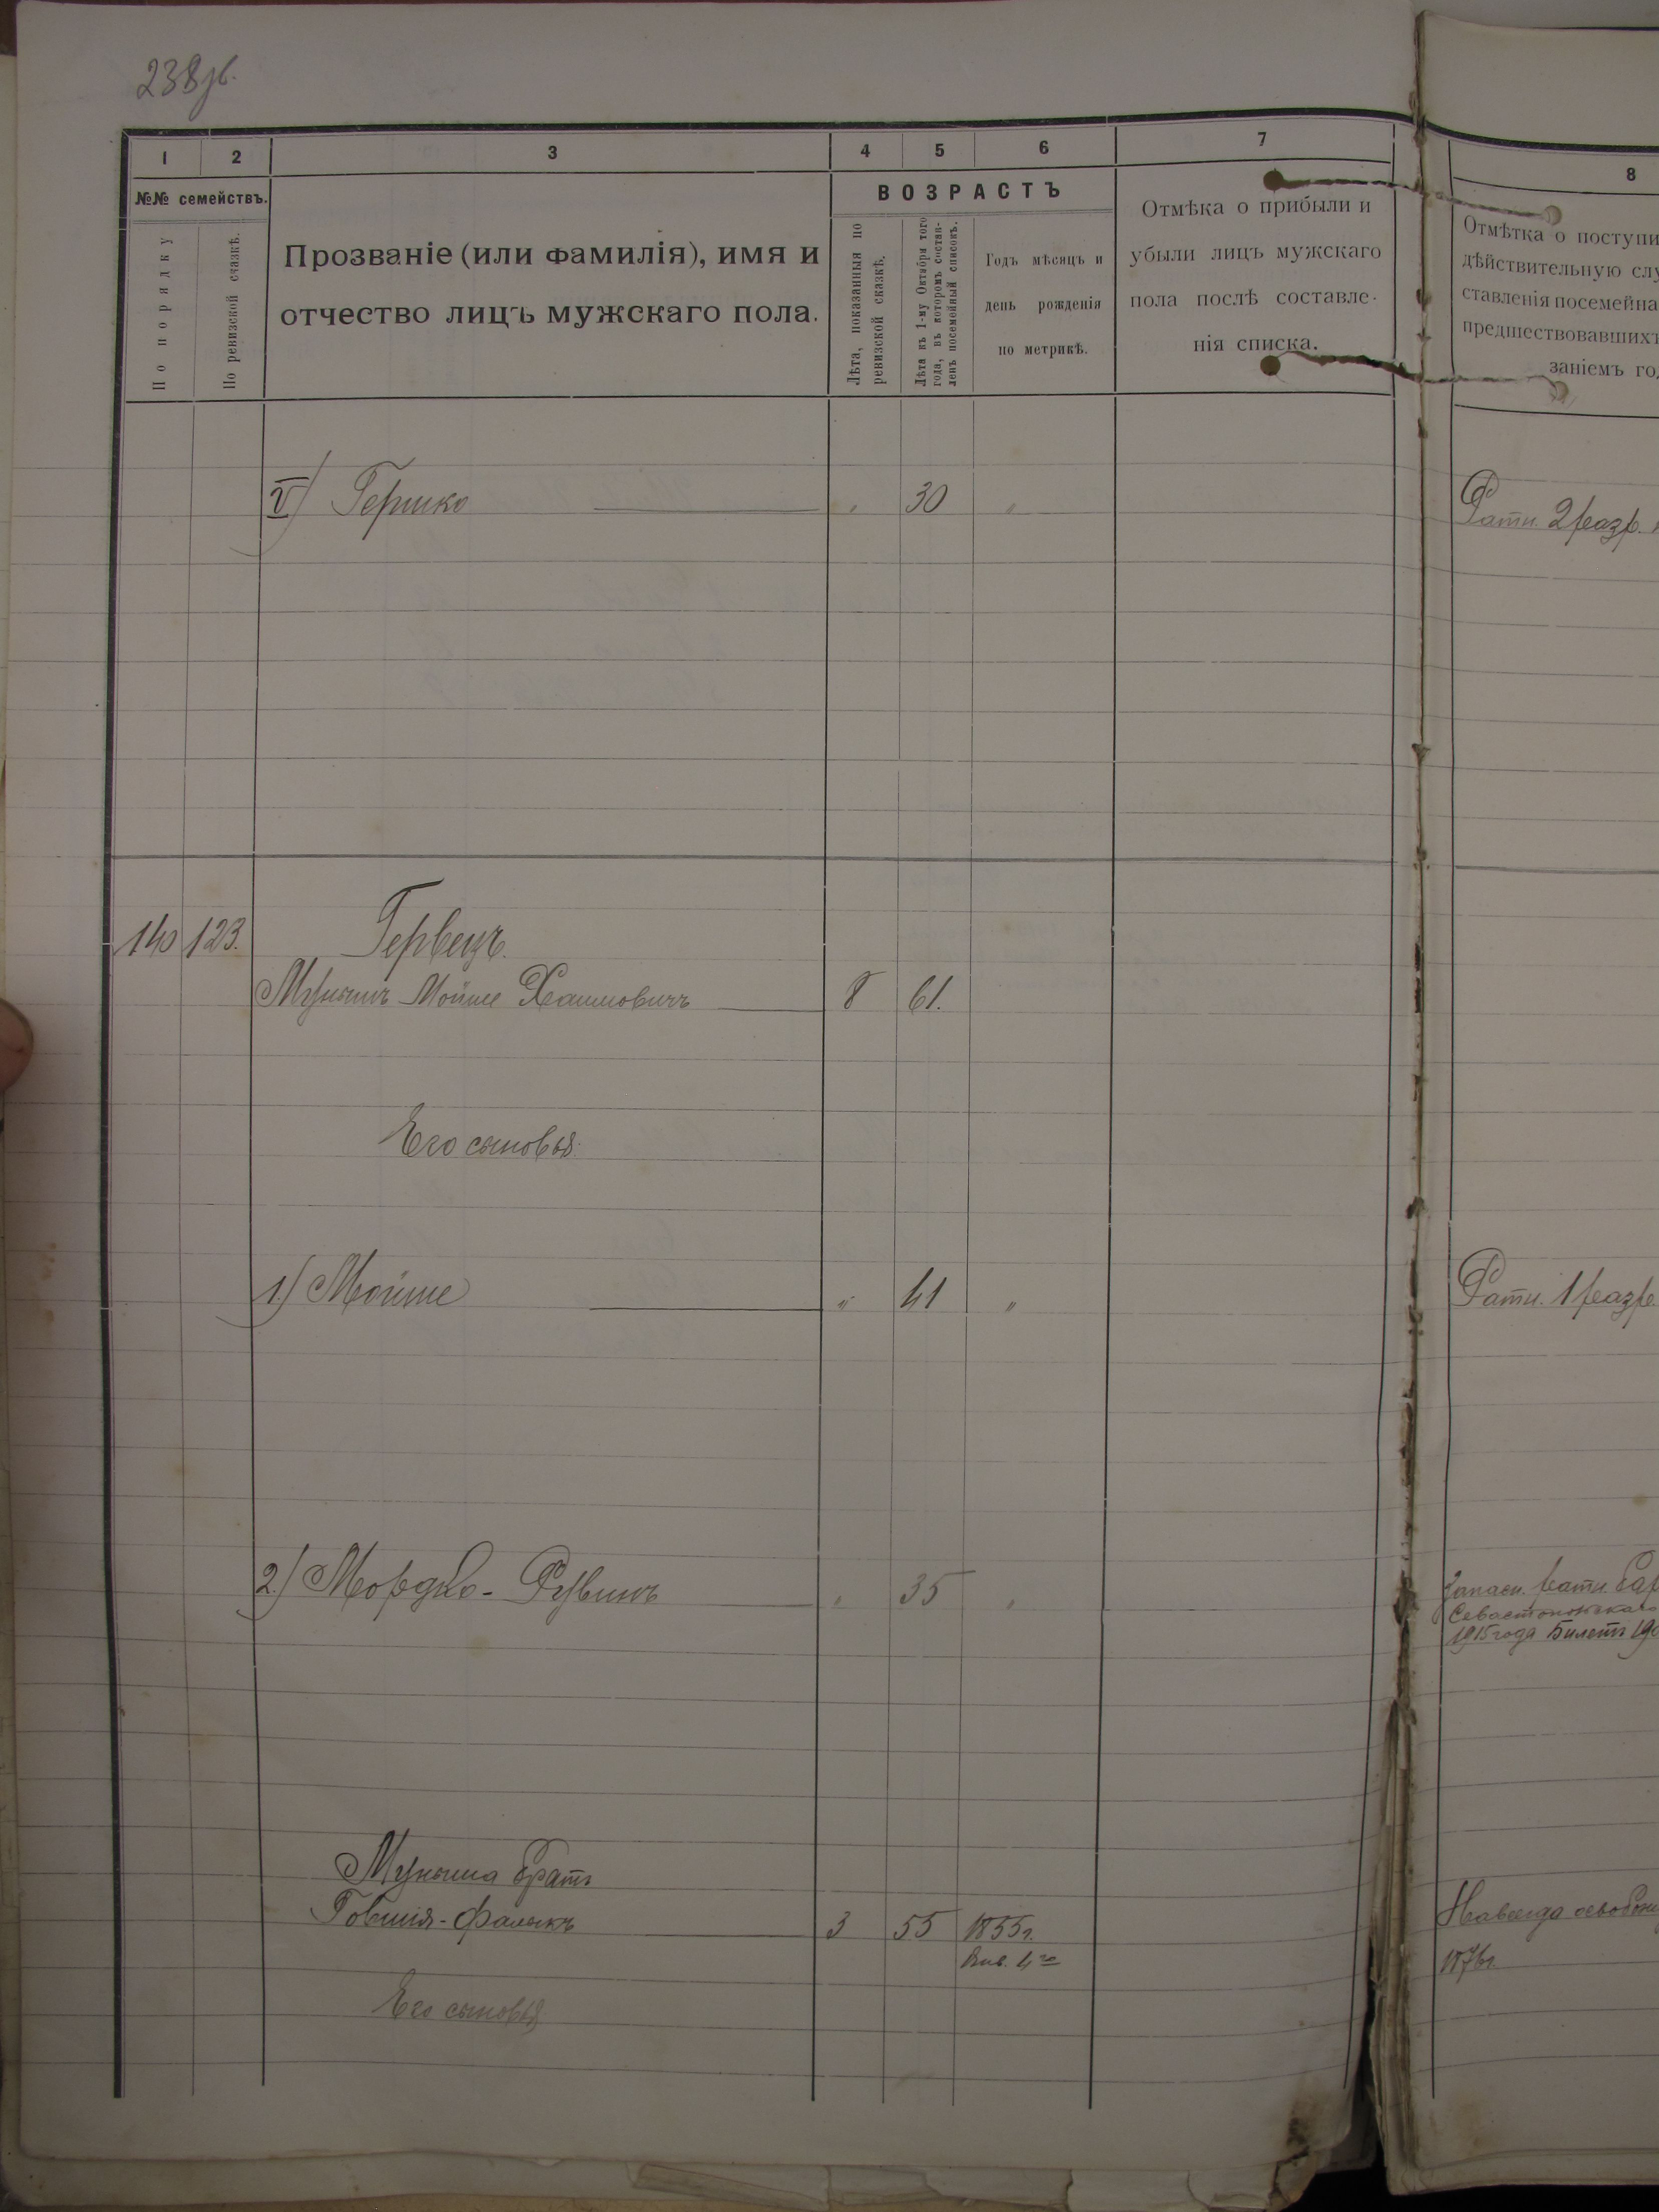 238 об.
1 2 3 4 5 6 7 8
№№ семействъ.
По порядку
По ревизской сказкѣ.
Прозваніе (или фамилія), имя и
отчество лицъ мужскаго пола.
ВОЗРАСТЪ
Лѣта, показанныя по
ревизской сказкѣ.
Лѣта къ 1-му Октября того
года, въ которомъ состав-
ленъ посемейный списокъ.
Годъ мѣсяцъ и
день рожденія
по метрикѣ.
Отмѣка о прибыли и
убыли лицъ мужскаго
пола послѣ составле-
нія списка.
Отмѣтка о поступи
дѣйствительную слу
ставленія посемейна
предшествовавшихъ
заніемъ го
V) Гершко " 30 "
Ратн. 2 разр.
140 123. Гервецъ.
Мунышъ Мойше Хаимовичъ 8 61.
Его сыновья:
1) Мойше " 41 "
Ратн. 1 разр.
2) Мордко-Рувинъ " 35 "
Запасн. ратн.
Севастопольскаго
1915 года Билетъ
Муныша братъ
Говшія-Фалькъ 3 55 1855 г.
Янв. 4го
Навсегда
1876г.
Его сыновья